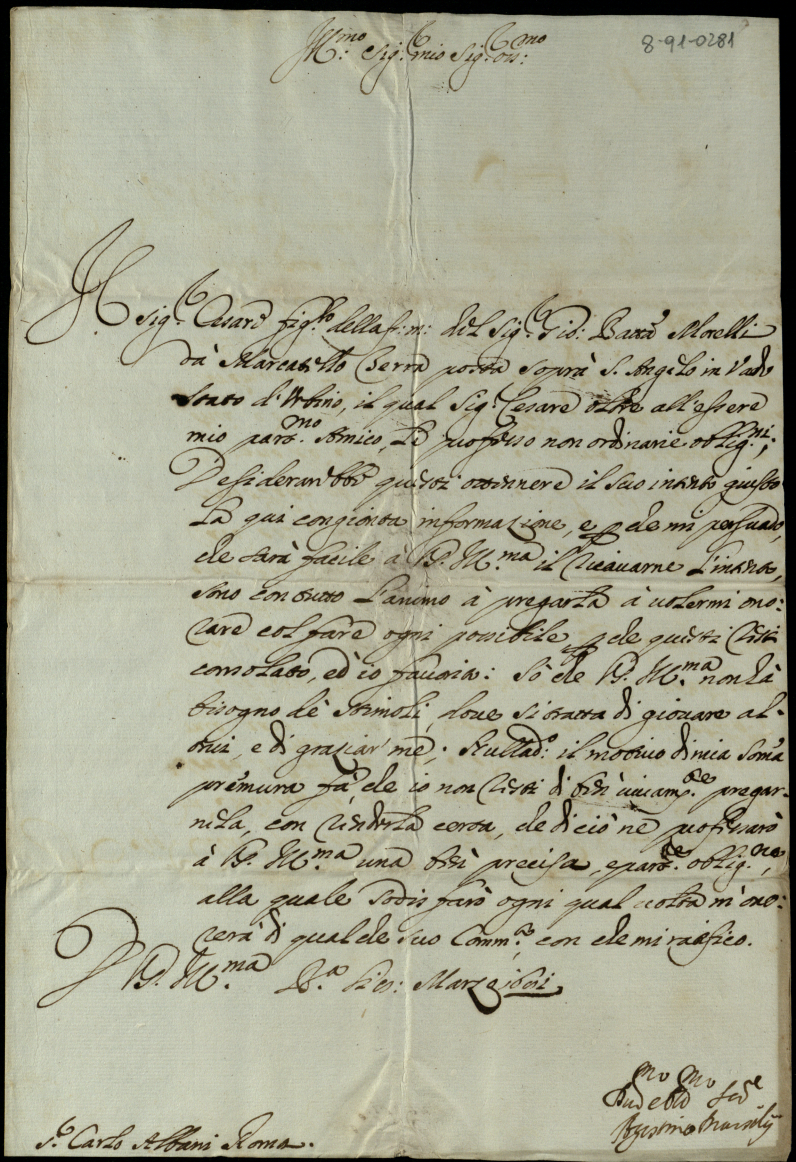 8-91-0281
Ill.mo Sig.r mio Sig.r oss.mo
Il Sig.r Cesare fig.lo della f: m: del Sig.r Gio: Batta Morelli
da Mercatello Terra posta soprà S. Angelo in Vado
Stato d'Urbino, il qual Sig.r Cesare oltre all'essere
mio par.mo Amico, Le professo non ordinarie oblig.ni;
Desiderarebbe questi ottennere il suo intento giusto
La qui congionta informazione, e p che mi persuado,
che sarà facile à V.S. Ill.ma il ricavarne l'intento,
sono con tutto l'animo à pregarla à volermi ono:
rare col fare ogni possibile p che questi resti
consolato, ed io favorito: Sò che V.S. Ill.ma non hà
bisogno de stimoli, dove si tratta di giovare al-
trui, e di graziar me; Nullad.o il motivo di mia somã
premura fà, che io non resti di vivam.te pregar-
nela, con renderla certa, che di ciò ne professarò
à V.S. Ill.ma una precisa, e par.re oblig.ne,
alla quale sodisfarò ogni qual volta m'ono:
rerà di qualche suo Comm.o, con che mi raffico.
D V.S. Ill.ma Marzo
Dev.mo Obl.mo Ser.e
Agostino
S.r Carlo Albani Roma.